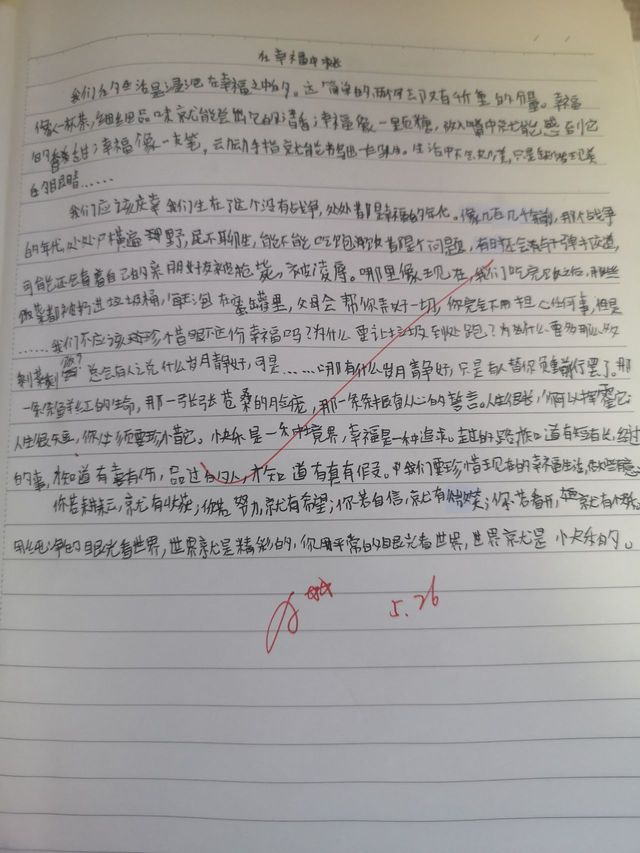 在幸福中
我们的生活是浸泡在幸福之中的。这简单的两字却又有千斤重的分量。幸福
像一杯茶,细细品味就能尝出它的清香;幸福像一里糖,放入嘴中就能感到它
的香甜;幸福像一支笔,云动手指就能书写出一片。生活中不乏,只是缺发现美
的眼睛……
我们应该庆幸我们生在了这个没有战争,处处都是幸福的年代。像几百几十年前,那个战争
的年代,处处尸横遍野,民不聊生,能不能吃饱都是个问题,有时还会有子弹
可能还会看着自己的亲朋好友被枪,被凌辱。哪里像现在,我们吃完之后,
饭菜都被扔进垃圾桶,每天泡在蜜罐里,父母会帮你弄好一切,你完全不用担心任何事,但是
……我们不应该珍惜眼下这份幸福吗?为什么要让垃圾到处跑?为什么要那么
总会有人说什么岁月静好,可是……哪有什么岁月静好,只是有人替你负重前行罢了。那
一条条鲜红的生命,那一张张苍桑的脸庞,那一条条振奋人心的誓言。人生很长,你可以挥霍它
人生很短,你必须要珍惜它。快乐是一种境界,幸福是一种追求。走过的路,才知道有短有长,经过
的事,才知道有喜有伤,品过的人,才知道有真有假。我们要珍惜现在的幸福生活,
你若耕耘,就有收获;你若努力,就有希望;你若自信,就有微笑;你若看开,就有快乐
用纯净的眼光看世界,世界就是精彩的,你用平常的眼光看世界,世界就是快乐的。
5.26